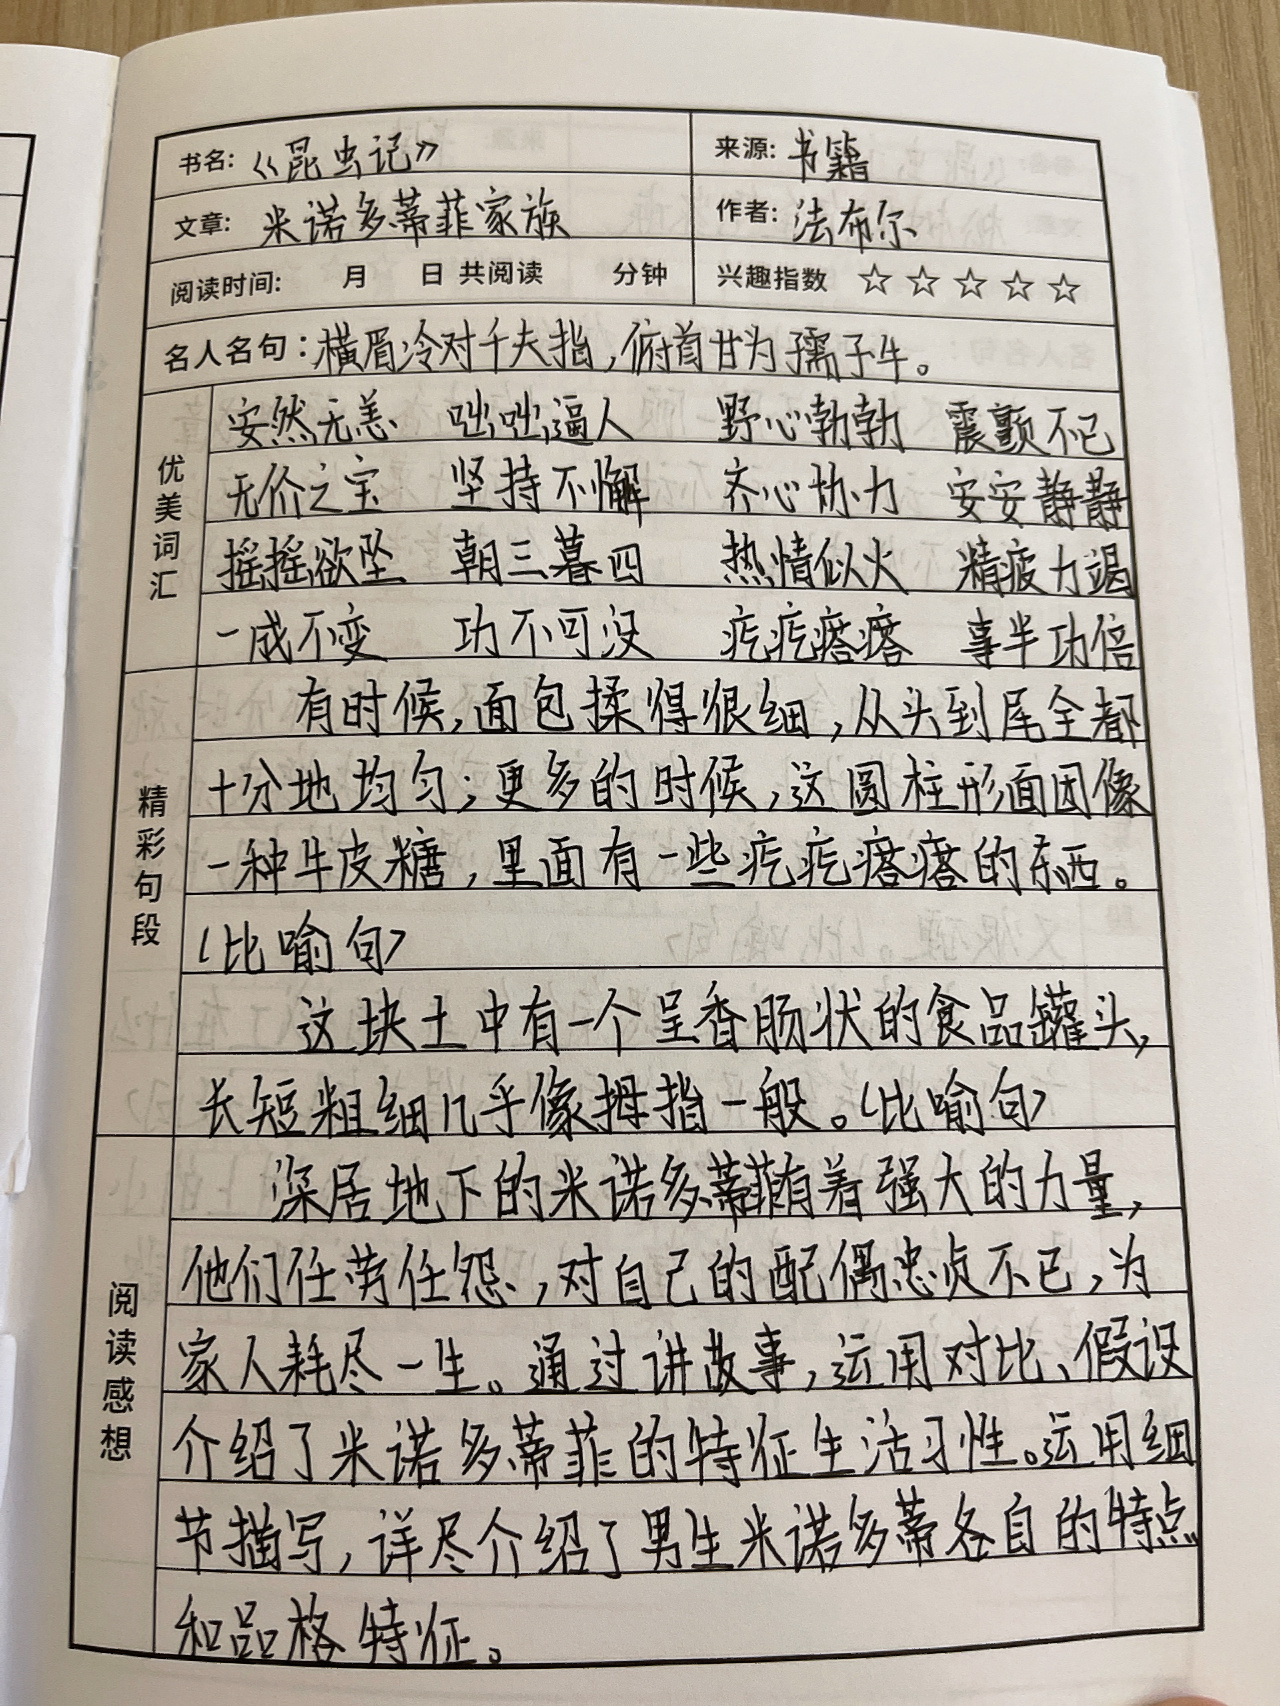 书名:《昆虫记》 来源: 书籍
文章: 米诺多蒂菲家族 作者: 法布尔
阅读时间: 月 日 共阅读 分钟 兴趣指数 ☆☆☆☆☆
名人名句:横眉冷对千夫指,俯首甘为孺子牛。
优美词汇
安然无恙 咄咄逼人 野心勃勃 震颤不已
无价之宝 坚持不懈 齐心协力 安安静静
摇摇欲坠 朝三暮四 热情似火 精疲力竭
一成不变 功不可没 疙疙瘩瘩 事半功倍
精彩句段
有时候,面包揉得很细,从头到尾全都
十分地均匀;更多的时候,这圆柱形面团像
一种牛皮糖,里面有一些疙疙瘩瘩的东西。
(比喻句)
这块土中有一个呈香肠状的食品罐头,
长短粗细几乎像拇指一般。(比喻句)
阅读感想
深居地下的米诺多蒂菲有着强大的力量,
他们任劳任怨,对自己的配偶忠贞不已,为
家人耗尽一生。通过讲故事,运用对比、假设
介绍了米诺多蒂菲的特征生活习性。运用细
节描写,详尽介绍了男生米诺多蒂各自的特点
和品格特征。